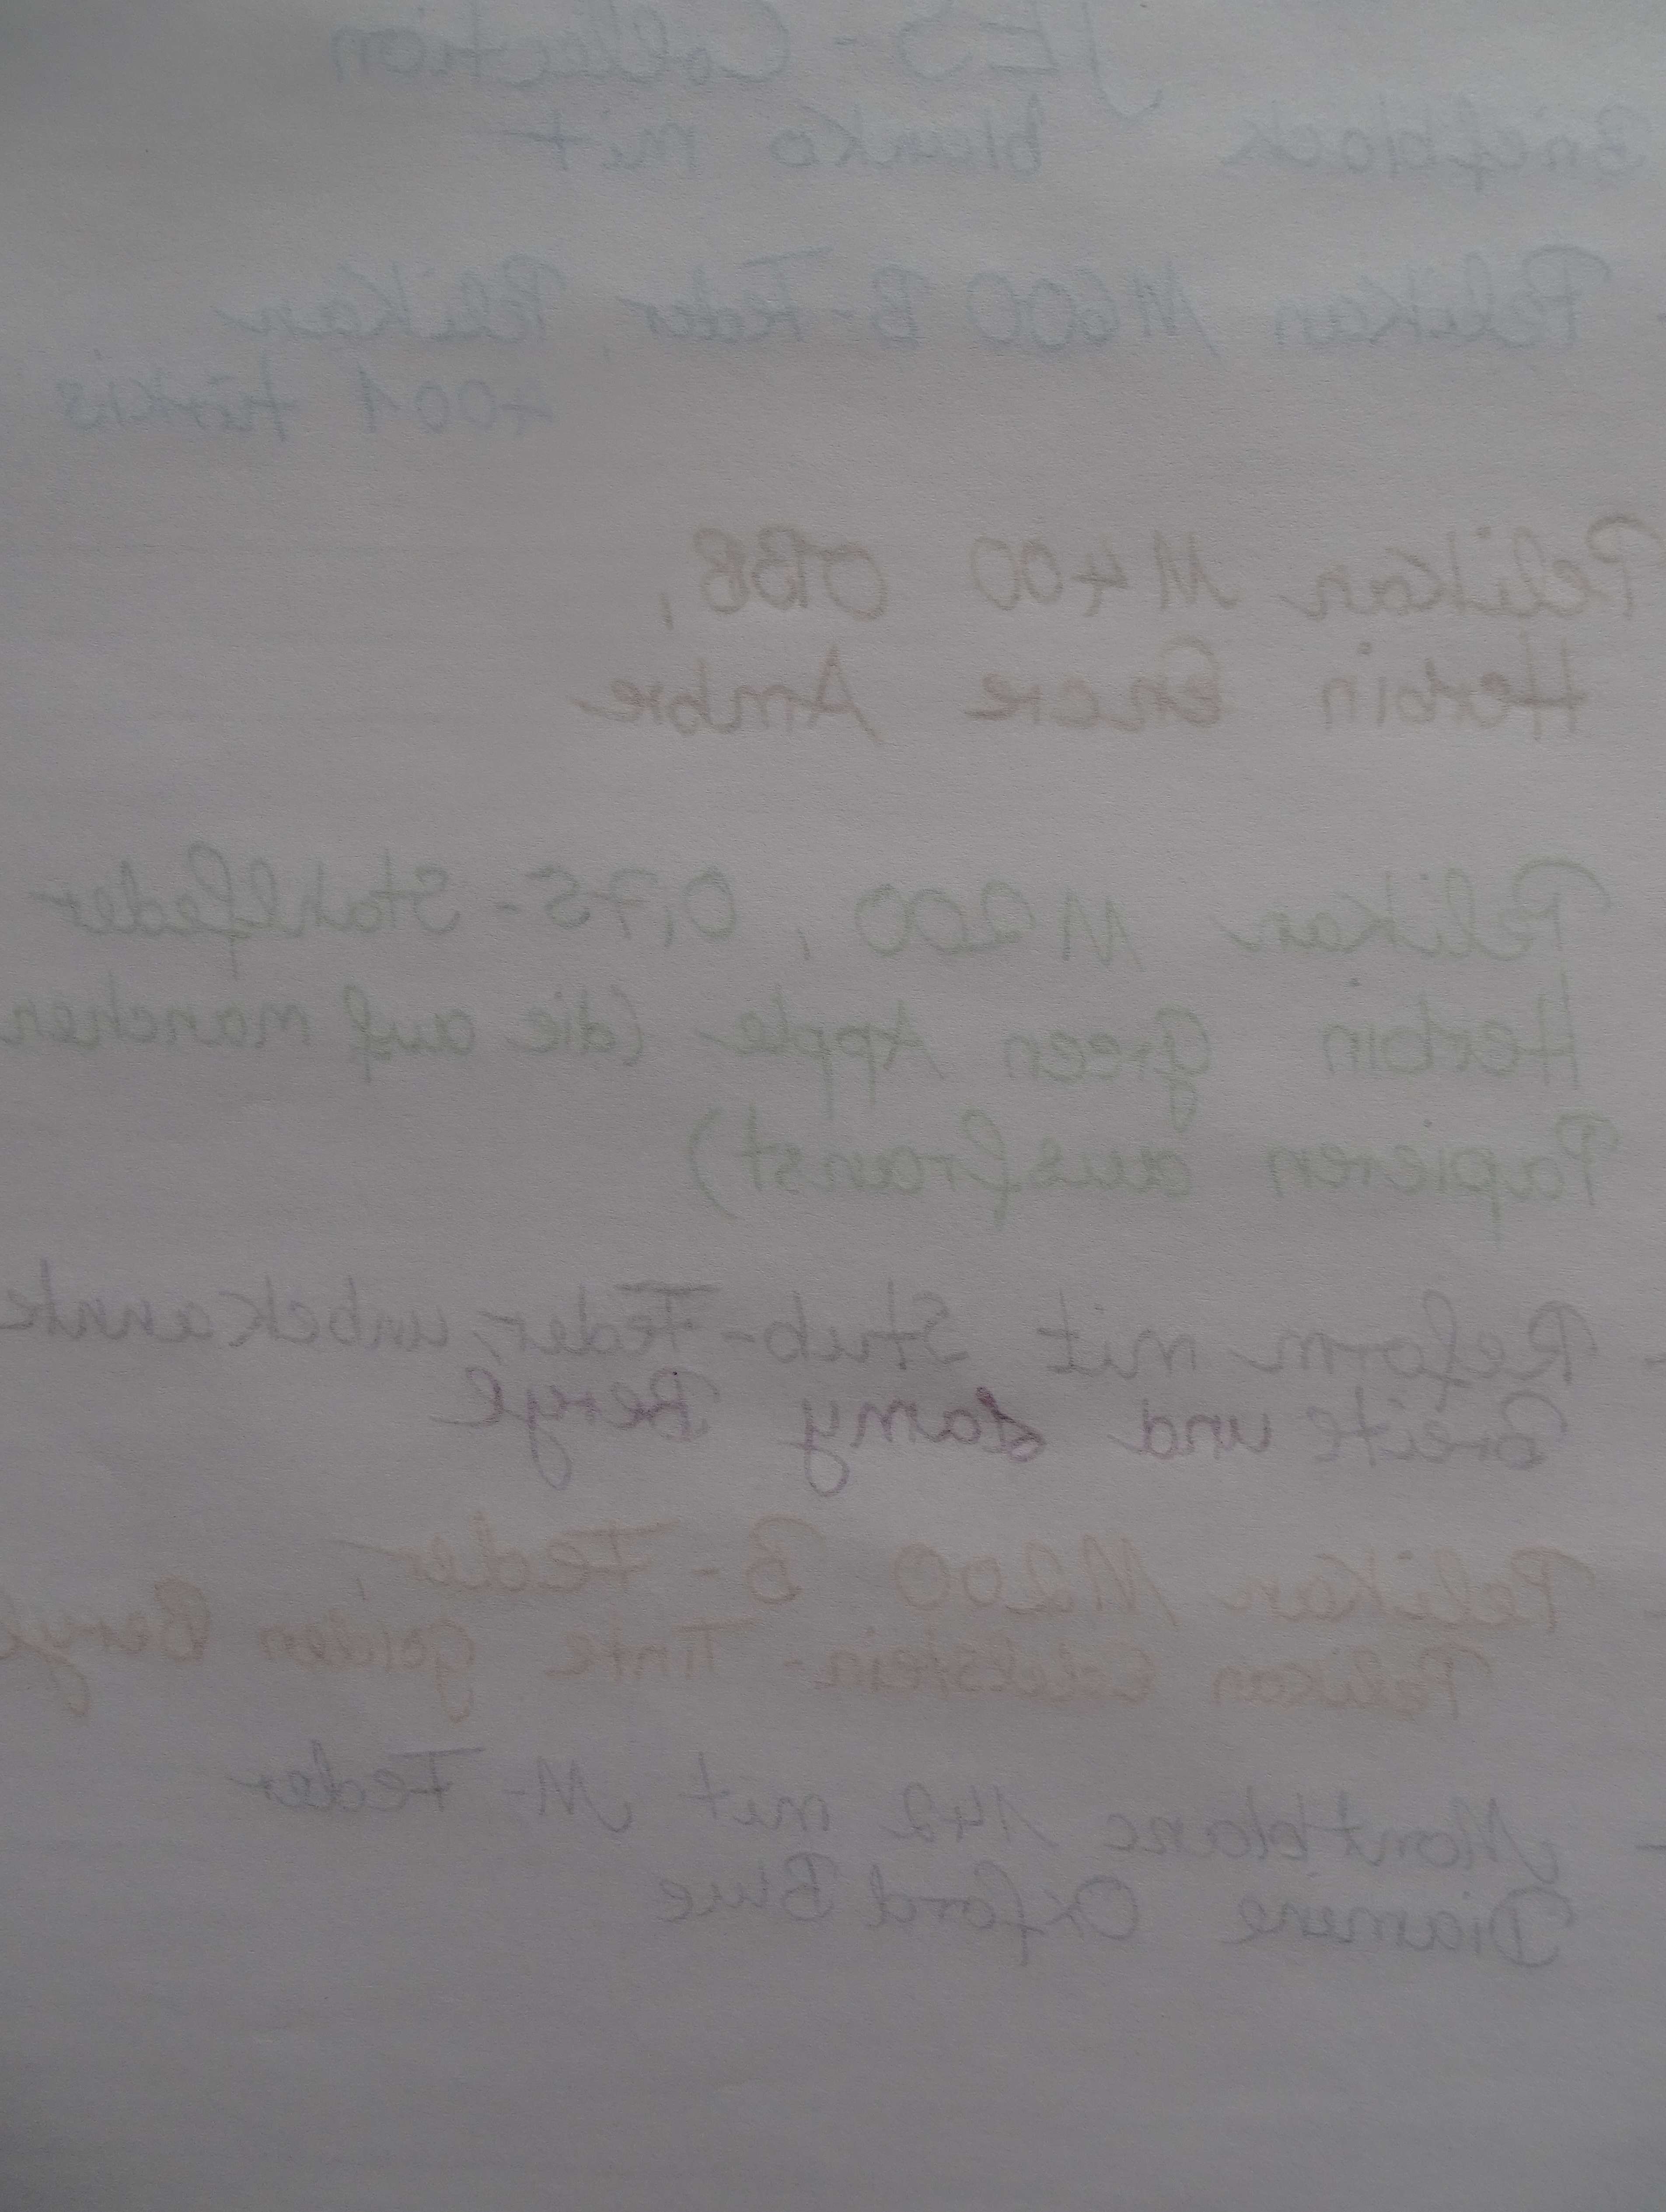 YES - Collection
Briefblock blanko mit
- Pelikan M600 B-Feder, Pelikan
4001 türkis
Pelikan M400 OBB,
Herbin Encre Ambre
Pelikan M200, 0,75-Stahlfeder
Herbin Green Apple (die auf manchen
Papieren ausfranst)
- Reform mit Stub-Feder, unbekannte
Breite und Lamy Beryl
- Pelikan M200 B-Feder,
Pelikan Edelstein-Tinte Golden Beryl
- Montblanc 142 mit M-Feder
Diamine Oxford Blue